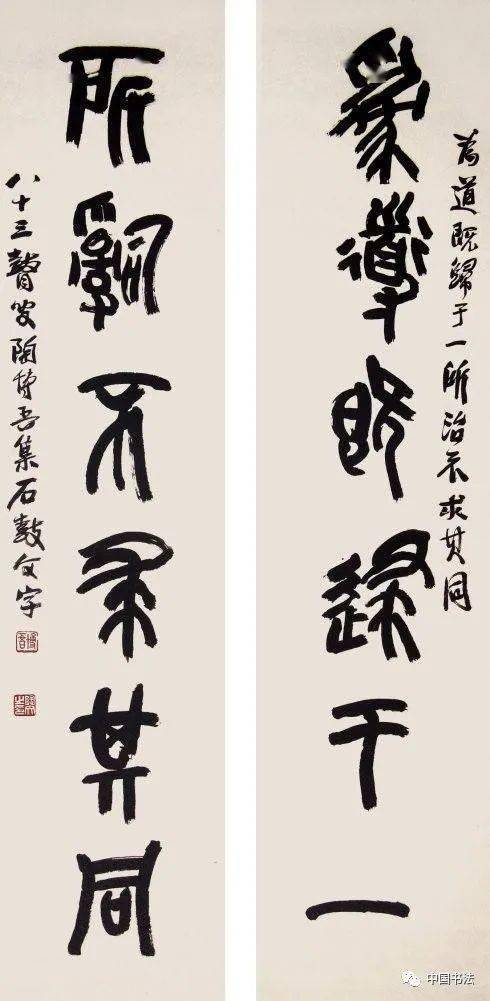 為道既歸于一所治不求其同
為道既歸于一
所治不求其同
八十三聱叟陶博吾集石鼓文字
中国书法